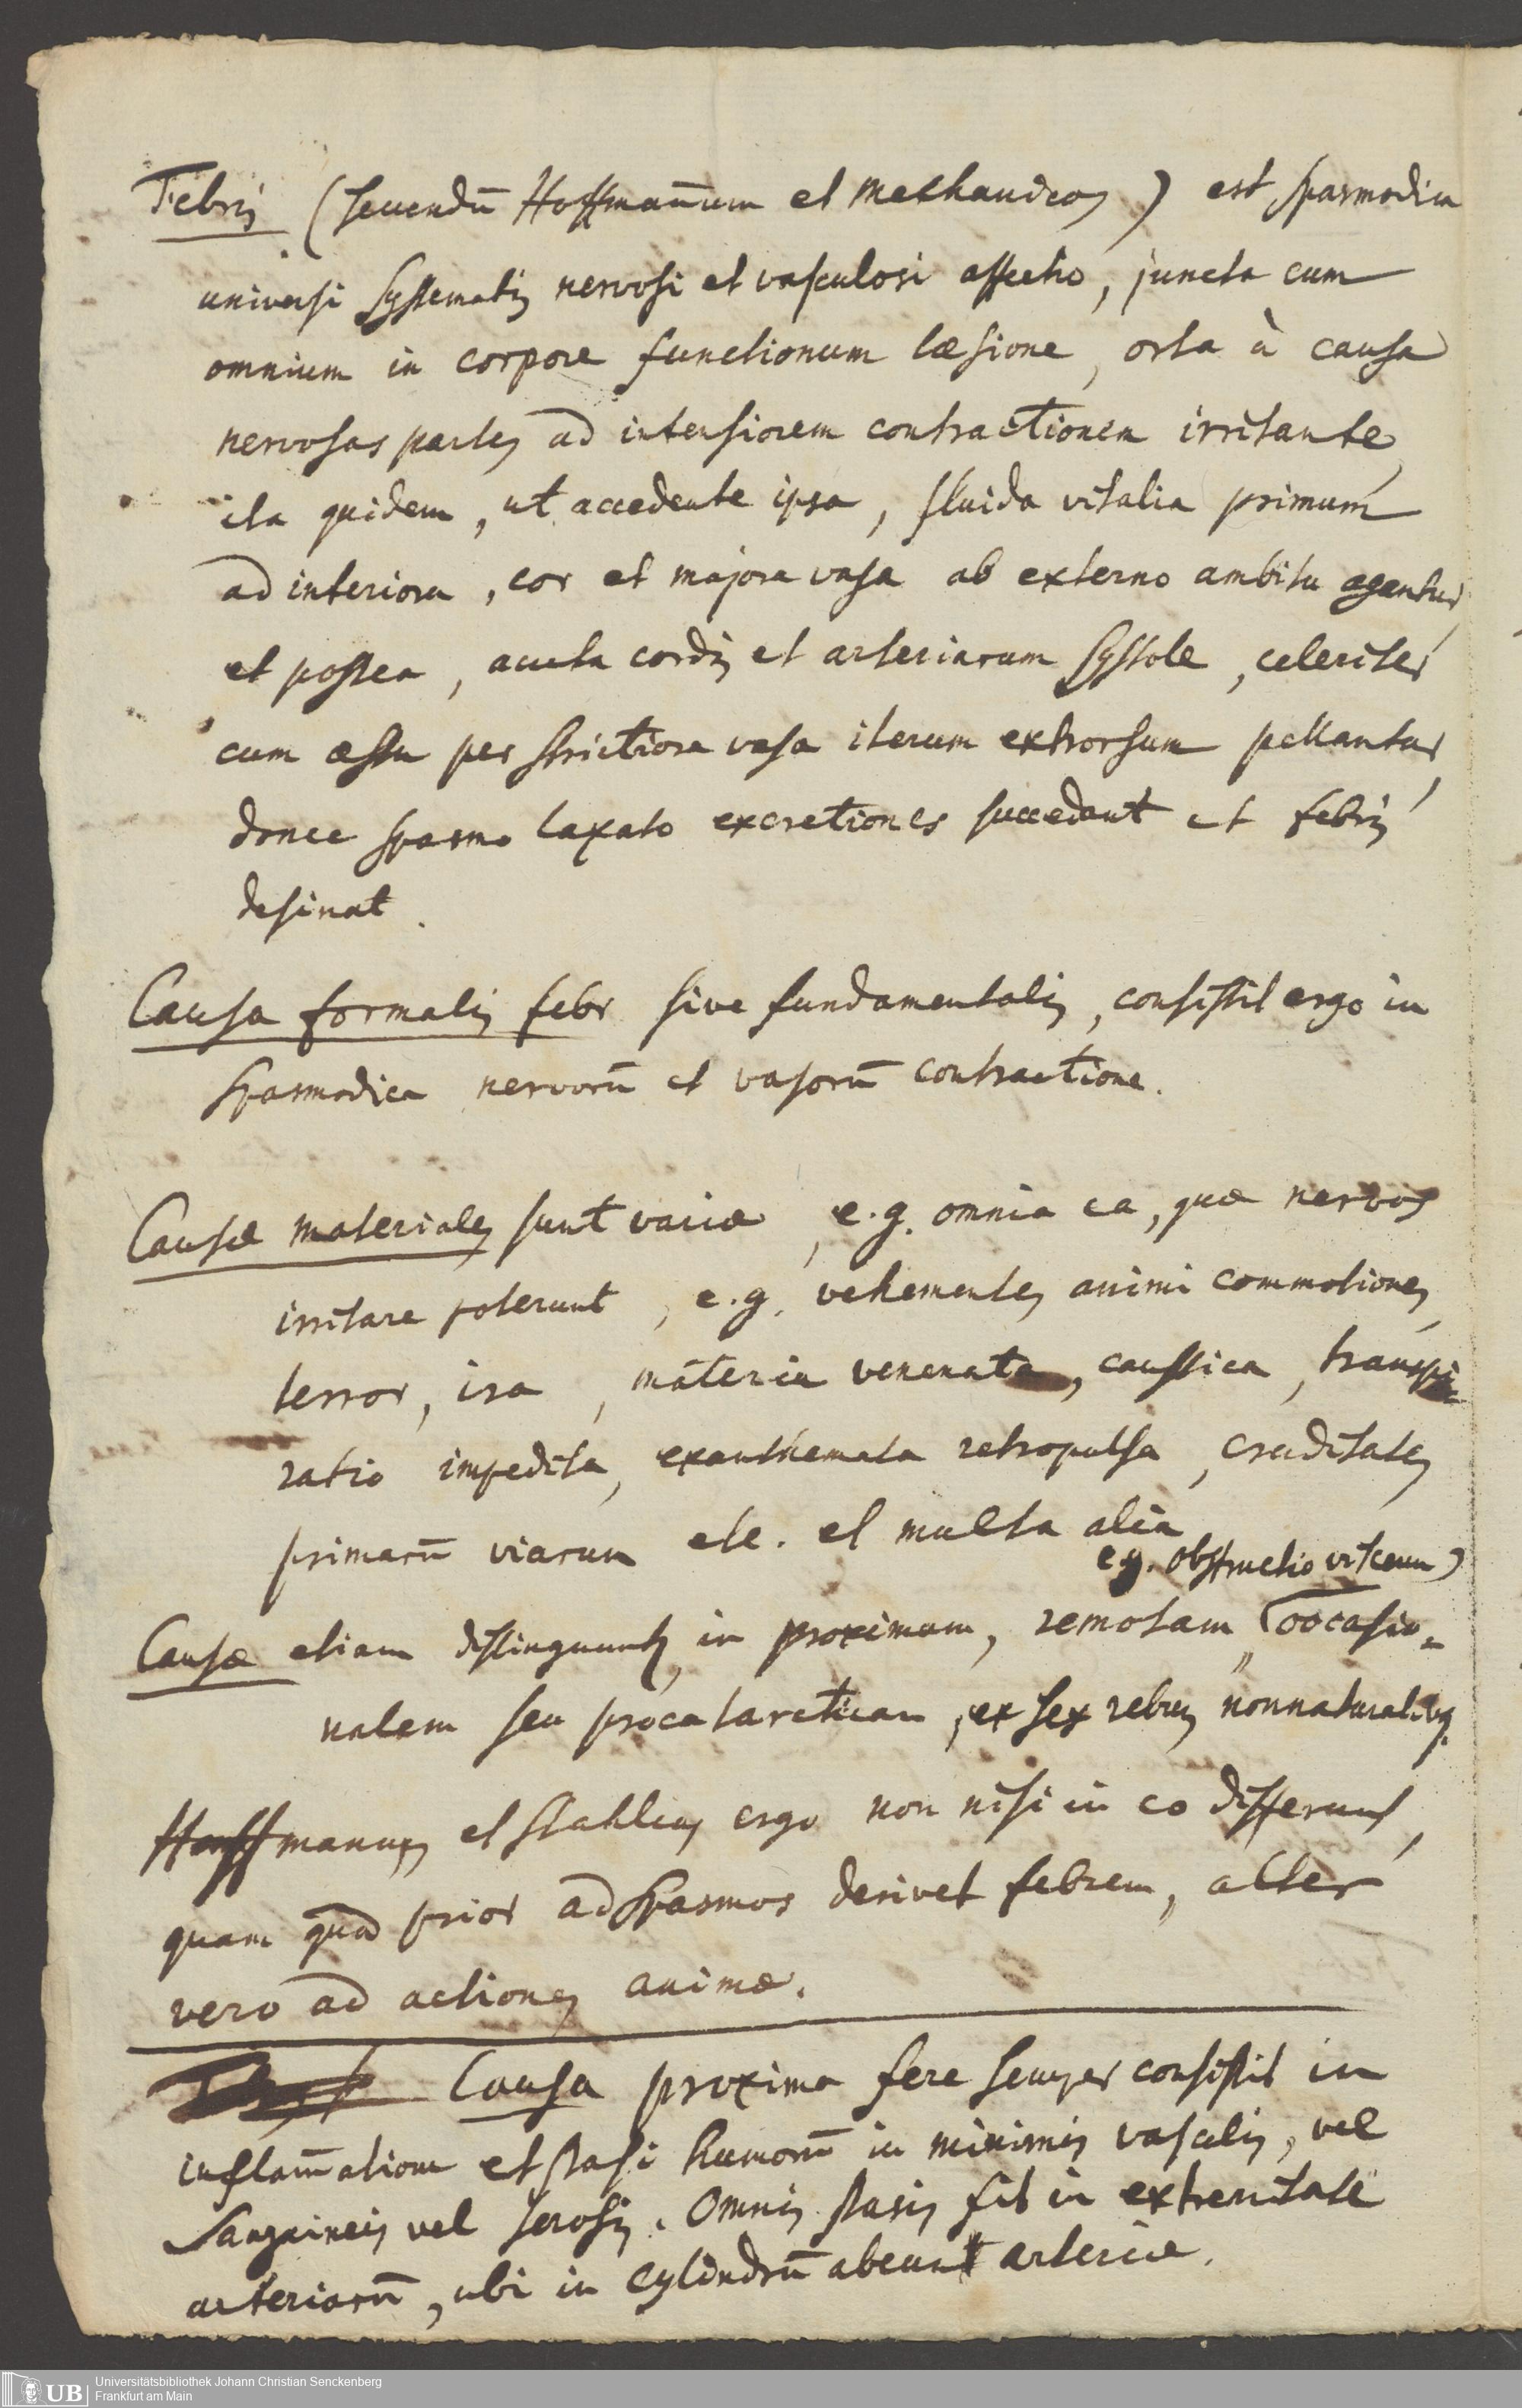 Febris (secundū Hoffmañum et mechanicos) est spasmodica
universi Systematis nervosi et vasculosi affectio, juncta cum
omnium in corpore functionum læsione, orta à causa
nervosas partes ad intensiorem contractionem irritante,
ita quidem, ut accedente ipsa, fluida vitalia primum
ad interiora, cor et majora vasa ab externo ambitu agantur,
et postea, aucta cordis et arteriarum Systole, celeriter
cum æstu per strictiora vasa iterum extrorsum pellantur,
donec spasmo laxato excretiones succedant et febris
desinat.
Causa formalis febr sive fundamentalis, consistit ergo in
spasmodica nervorū et vasorū contractione.
Causæ materiales sunt variæ, e.g. omnia ea, quæ nervos
irritare poterunt, e.g. vehementes animi commotiones,
terror, ira, materia venenata, caustica, transpi-
ratio impedita, exanthemata retropulsa, cruditates
primarū viarum etc. et multa alia
e.g. obstructio viscerum)
Causæ etiam distinguuntur in proximam, remotam, (occasio-
nalem seu procatarcticam, ex sex rebus nonnaturalibq.
Hoffmanus et Stahlius ergo non nisi in eo differunt,
quam quod prior ad Spasmos derivet febrem, alter
vero ad actiones animæ.
Causa proxima fere semper consistit in
inflam̄atione et stasi humorū in minimis vasculis, vel
sanguineis vel serosis. Omnis stasis fit in extremitate
arteriarū, ubi in cylindrū abeunt arteriæ.
Universitätsbibliothek Johann Christian Senckenberg
Frankfurt am Main
UB